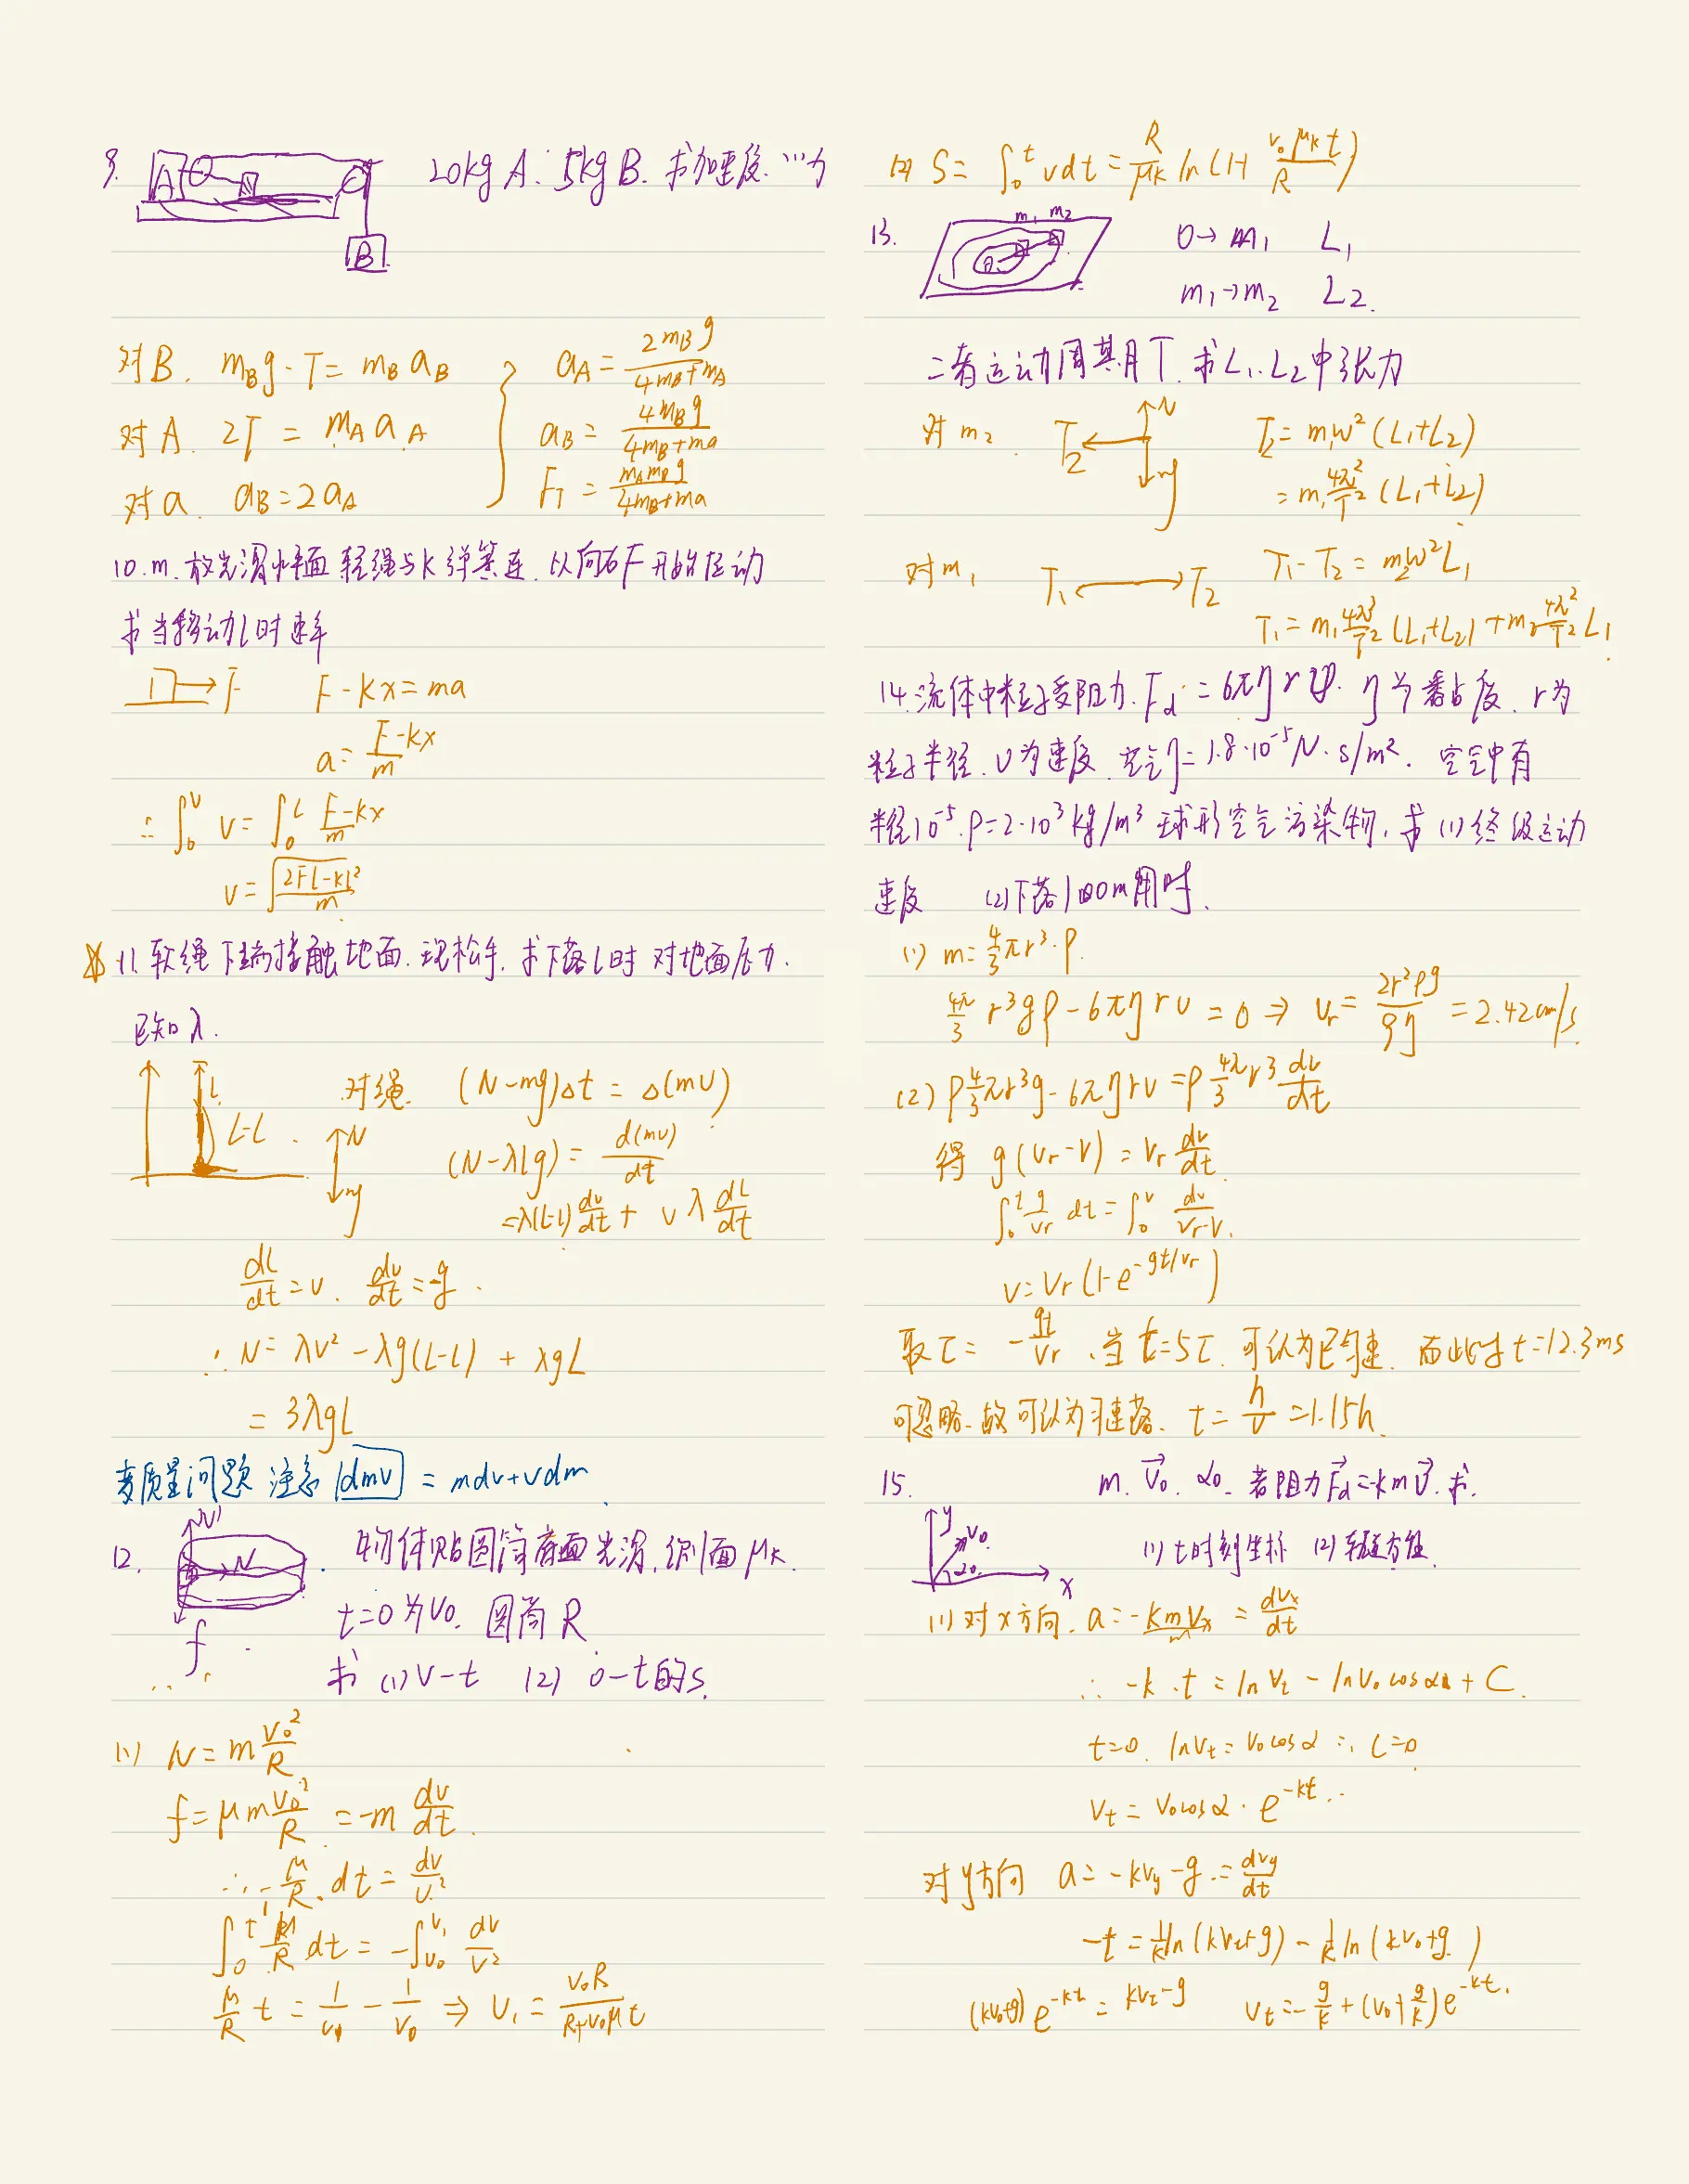 9.
A
B
20kg A. 5kg B. 求加速度.
对B. mBg - T = mB aB
对A. 2T = mA aA
对a. aB = 2aA
aA = 2mBg / (4mB+mA)
aB = 4mBg / (4mB+ma)
FT = mAmBg / (4mB+ma)
10. m. 放光滑水平面 轻绳与k弹簧连. 以向右F开始运动
求当移动l时速率
F
F - kx = ma
a = (F-kx)/m
∴ ∫₀^v v = ∫₀^L (F-kx)/m
v = √((2Fl-kl²)/m)
11. 软绳下端接触地面. 现松手. 求下落l时 对地面压力.
已知λ.
L-l
N
mg
对绳. (N-mg)Δt = Δ(mv)
(N-λlg) = d(mv)/dt
=λ(L-l) dv/dt + vλ dl/dt
dl/dt = v. dv/dt = -g.
∴ N = λv² - λg(L-l) + λgL
= 3λgL
变质量问题 注意 dmv = mdv+vdm
12.
N
f
物体贴圆筒底面光滑, 侧面μk.
t=0为v₀. 圆筒R
求 (1) v-t (2) 0-t的s.
(1) N = m v₀²/R
f = μm v₀²/R = -m dv/dt.
∴ -μ/R. dt = dv/v²
∫₀^t μ/R dt = -∫_{v₀}^{v₁} dv/v²
μ/R t = 1/v₁ - 1/v₀ ⇒ v₁ = v₀R / (R+v₀μt)
(2) S = ∫₀^t vdt = R/μk ln(1+ v₀μkt/R)
13.
m₁ m₂
0→m₁ L₁
m₁→m₂ L₂.
二者运动周期T. 求L₁. L₂中张力
对m₂ T₂ N mg
T₂ = m₁w²(L₁+L₂)
= m₁ 4π²/T² (L₁+L₂)
对m₁ T₁ T₂
T₁ - T₂ = m₂w²L₁
T₁ = m₁ 4π²/T² (L₁+L₂) + m₂ 4π²/T² L₁
14. 流体中粒子受阻力. Fd = 6πηrv. η为黏度. r为
粒子半径. v为速度. 空气η=1.8·10⁻⁵N·s/m². 空气中有
半径10⁻⁵. ρ=2·10³kg/m³ 球形空气污染物. 求 (1) 终极运动
速度 (2) 下落100m用时.
(1) m = 4/3 πr³·ρ.
4π/3 r³gρ - 6πηrv = 0 ⇒ vr = 2r²ρg / 9η = 2.42cm/s.
(2) ρ 4/3 πr³g - 6πηrv = ρ 4π/3 r³ dv/dt
得 g(vr-v) = vr dv/dt.
∫₀^t g/vr dt = ∫₀^v dv/(vr-v).
v = vr(1-e^{-gt/vr})
取τ = - gt/vr. 当t=5τ. 可认为已匀速. 而此时t=12.3ms
可忽略. 故可认为匀速落. t = h/v = 1.15h.
15.
m. v⃗₀. α₀. 若阻力F⃗d=-kmv⃗. 求.
y
v₀
α₀
x
(1) t时刻坐标 (2) 轨迹方程.
(1) 对x方向. a = -kmvx/m = dvx/dt
∴ -k·t = lnvt - lnv₀cosα + C.
t=0. lnvt = v₀cosα ∴ C=0
vt = v₀cosα·e^{-kt}.
对y方向 a = -kvy - g = dvy/dt
-t = 1/k ln(kvt+g) - 1/k ln(kv₀+g)
(kv₀+g)e^{-kt} = kvt-g vt = -g/k + (v₀+g/k)e^{-kt}.